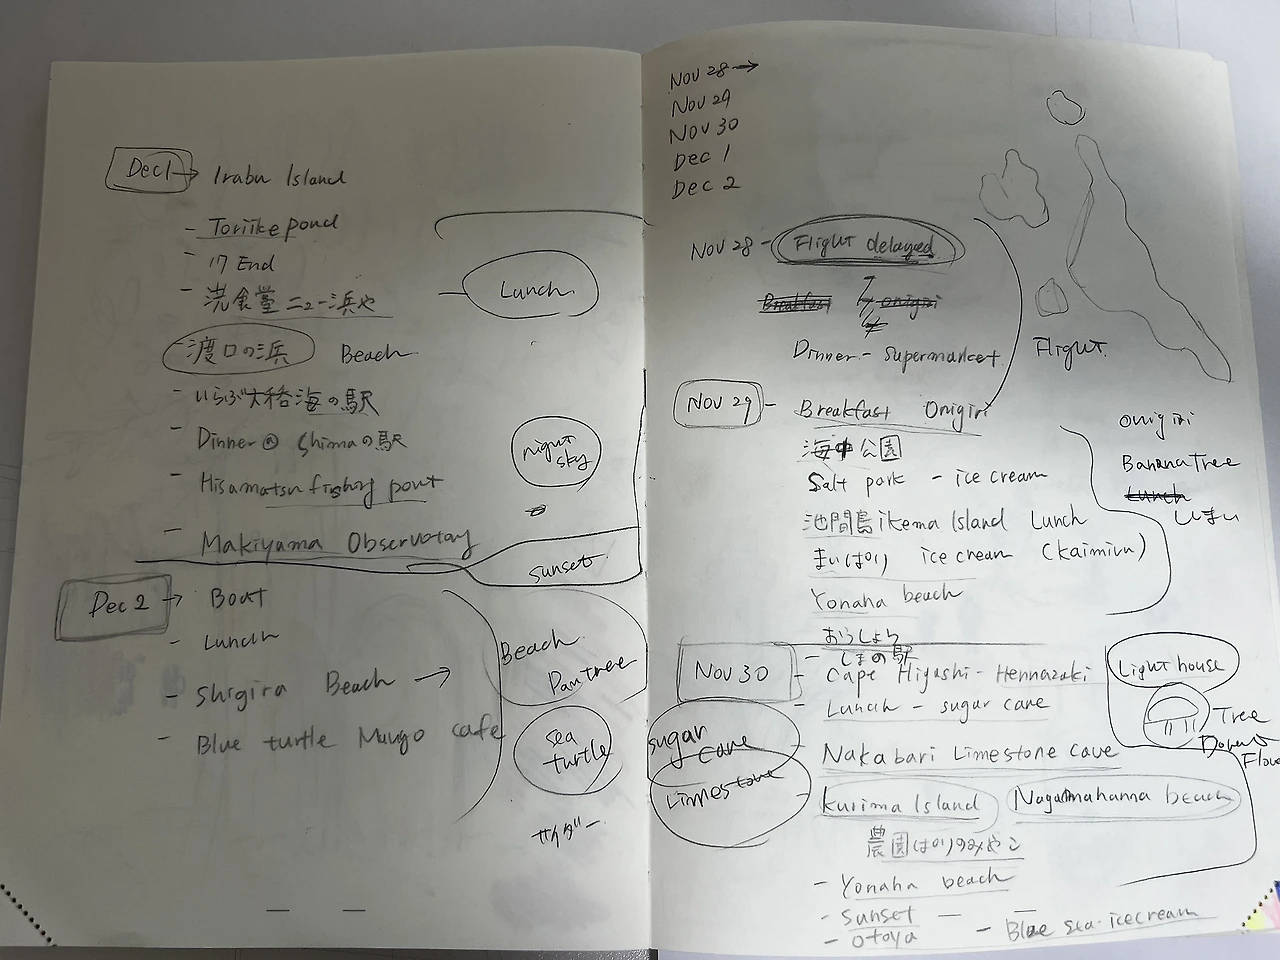 Dec 1 → Irabu Island
- Toriike pond
- 17 End
- 食堂ニュー浜や
Lunch
- 渡口の浜 Beach
- いらぶ大橋海の駅
- Dinner @ Shimaの駅
night sky
- Hisamatsu fishing
- Makiyama Observatory
sunset
Dec 2 → Boat
- Lunch
- Shigira Beach →
- Blue turtle Mango cafe
Beach
sea
turtle
サイダー
Nov 28 →
Nov 29
Nov 30
Dec 1
Dec 2
Nov 28 - Flight delayed
Breakfast onigiri
Dinner - supermarket
Flight
Nov 29 - Breakfast Onigiri
海中公園
Salt park - ice cream
池間島 ikema Island Lunch
まいぱり ice cream
Yonaha beach
- しまの駅
onigiri
Banana Tree
Lunch
Nov 30 - Cape Higashi - Hennazaki
- Lunch - sugar cane
Nakabari Limestone cave
Kurima Island
beach
農園
- Yonaha beach
- Sunset
- otoya
- Blue sea icecream
Light house
Tree
sugar
cane